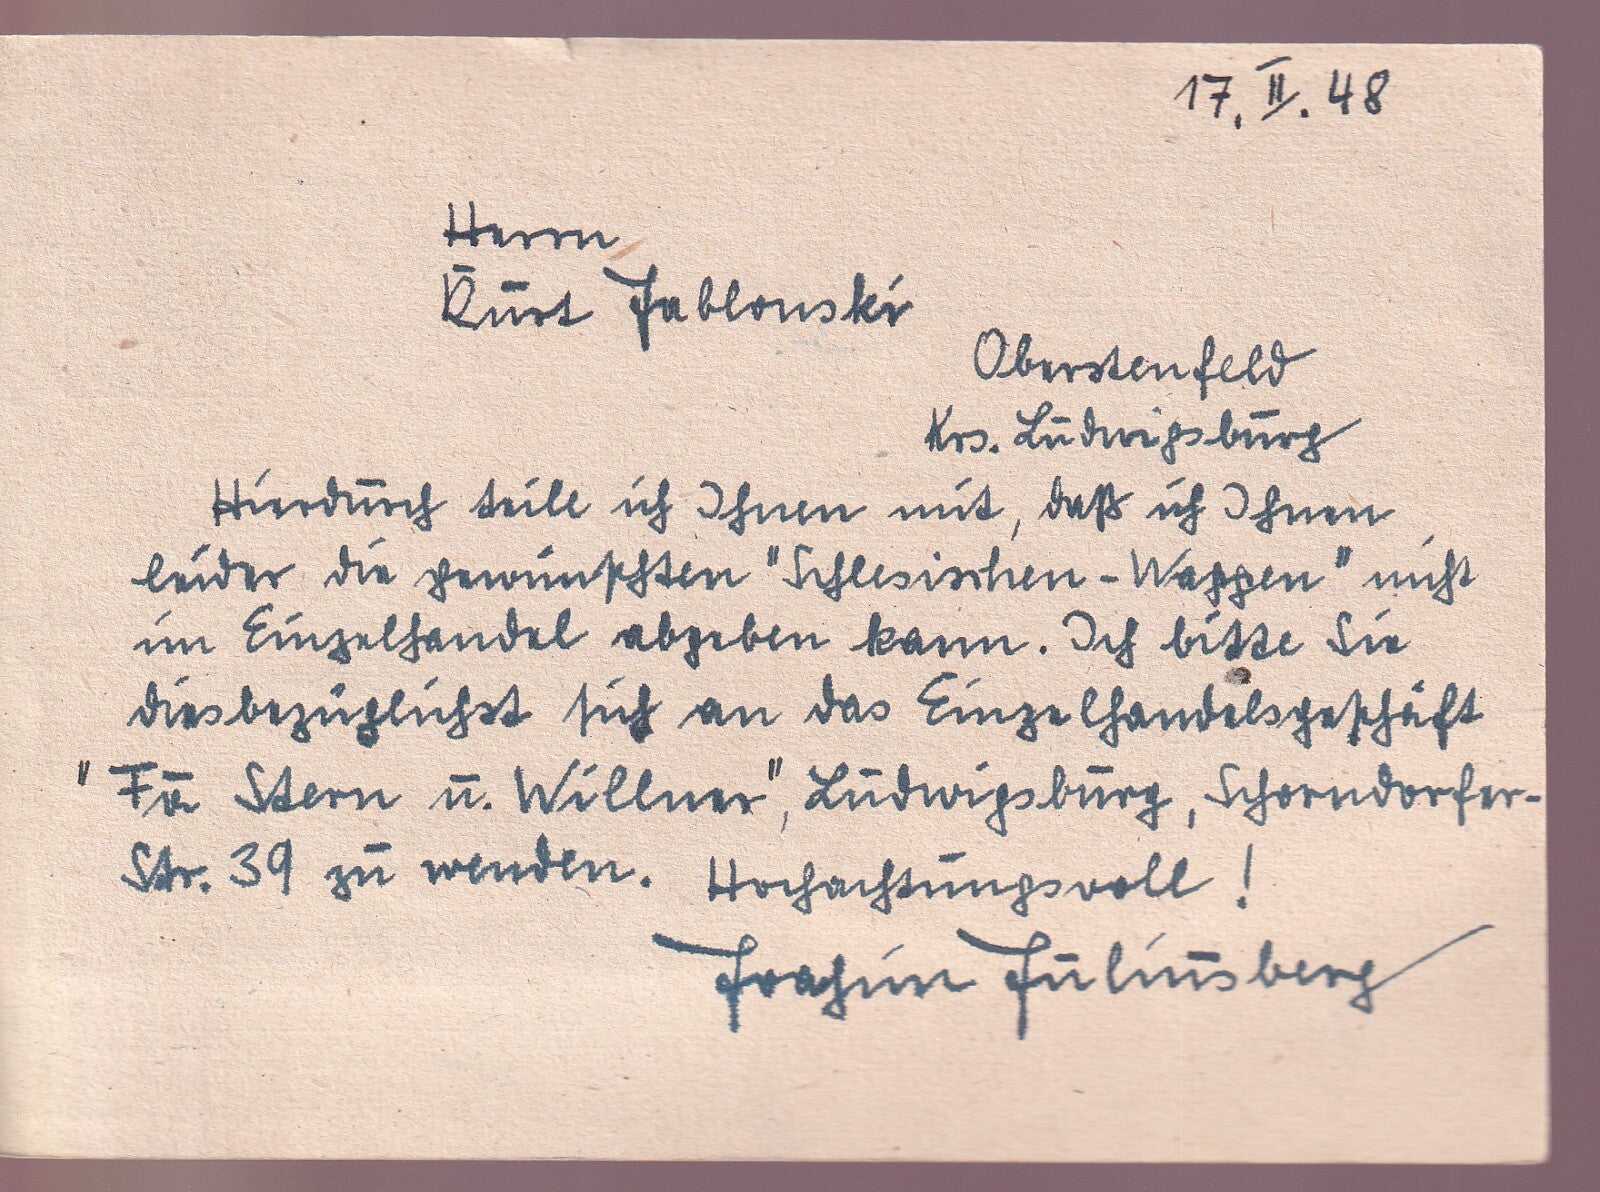 17. II. 48
Herrn
Kurt Jablonski
Oberstenfeld
Krs. Ludwigsburg
Hierdurch teile ich Ihnen mit, daß ich Ihnen
leider die gewünschten "Schlesischen-Wappen" nicht
im Einzelhandel abgeben kann. Ich bitte Sie
diesbezüglichst sich an das Einzelhandelsgeschäft
"Fa Stern u. Willner", Ludwigsburg, Schorndorfer-
Str. 39 zu wenden. Hochachtungsvoll!
Joachim Juliusberg